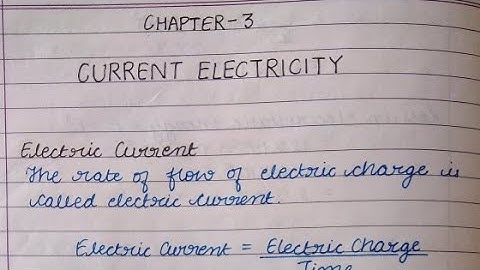 CHAPTER-3
CURRENT ELECTRICITY
Electric Current
The rate of flow of electric charge is
called electric current.
Electric Current = Electric Charge
Time